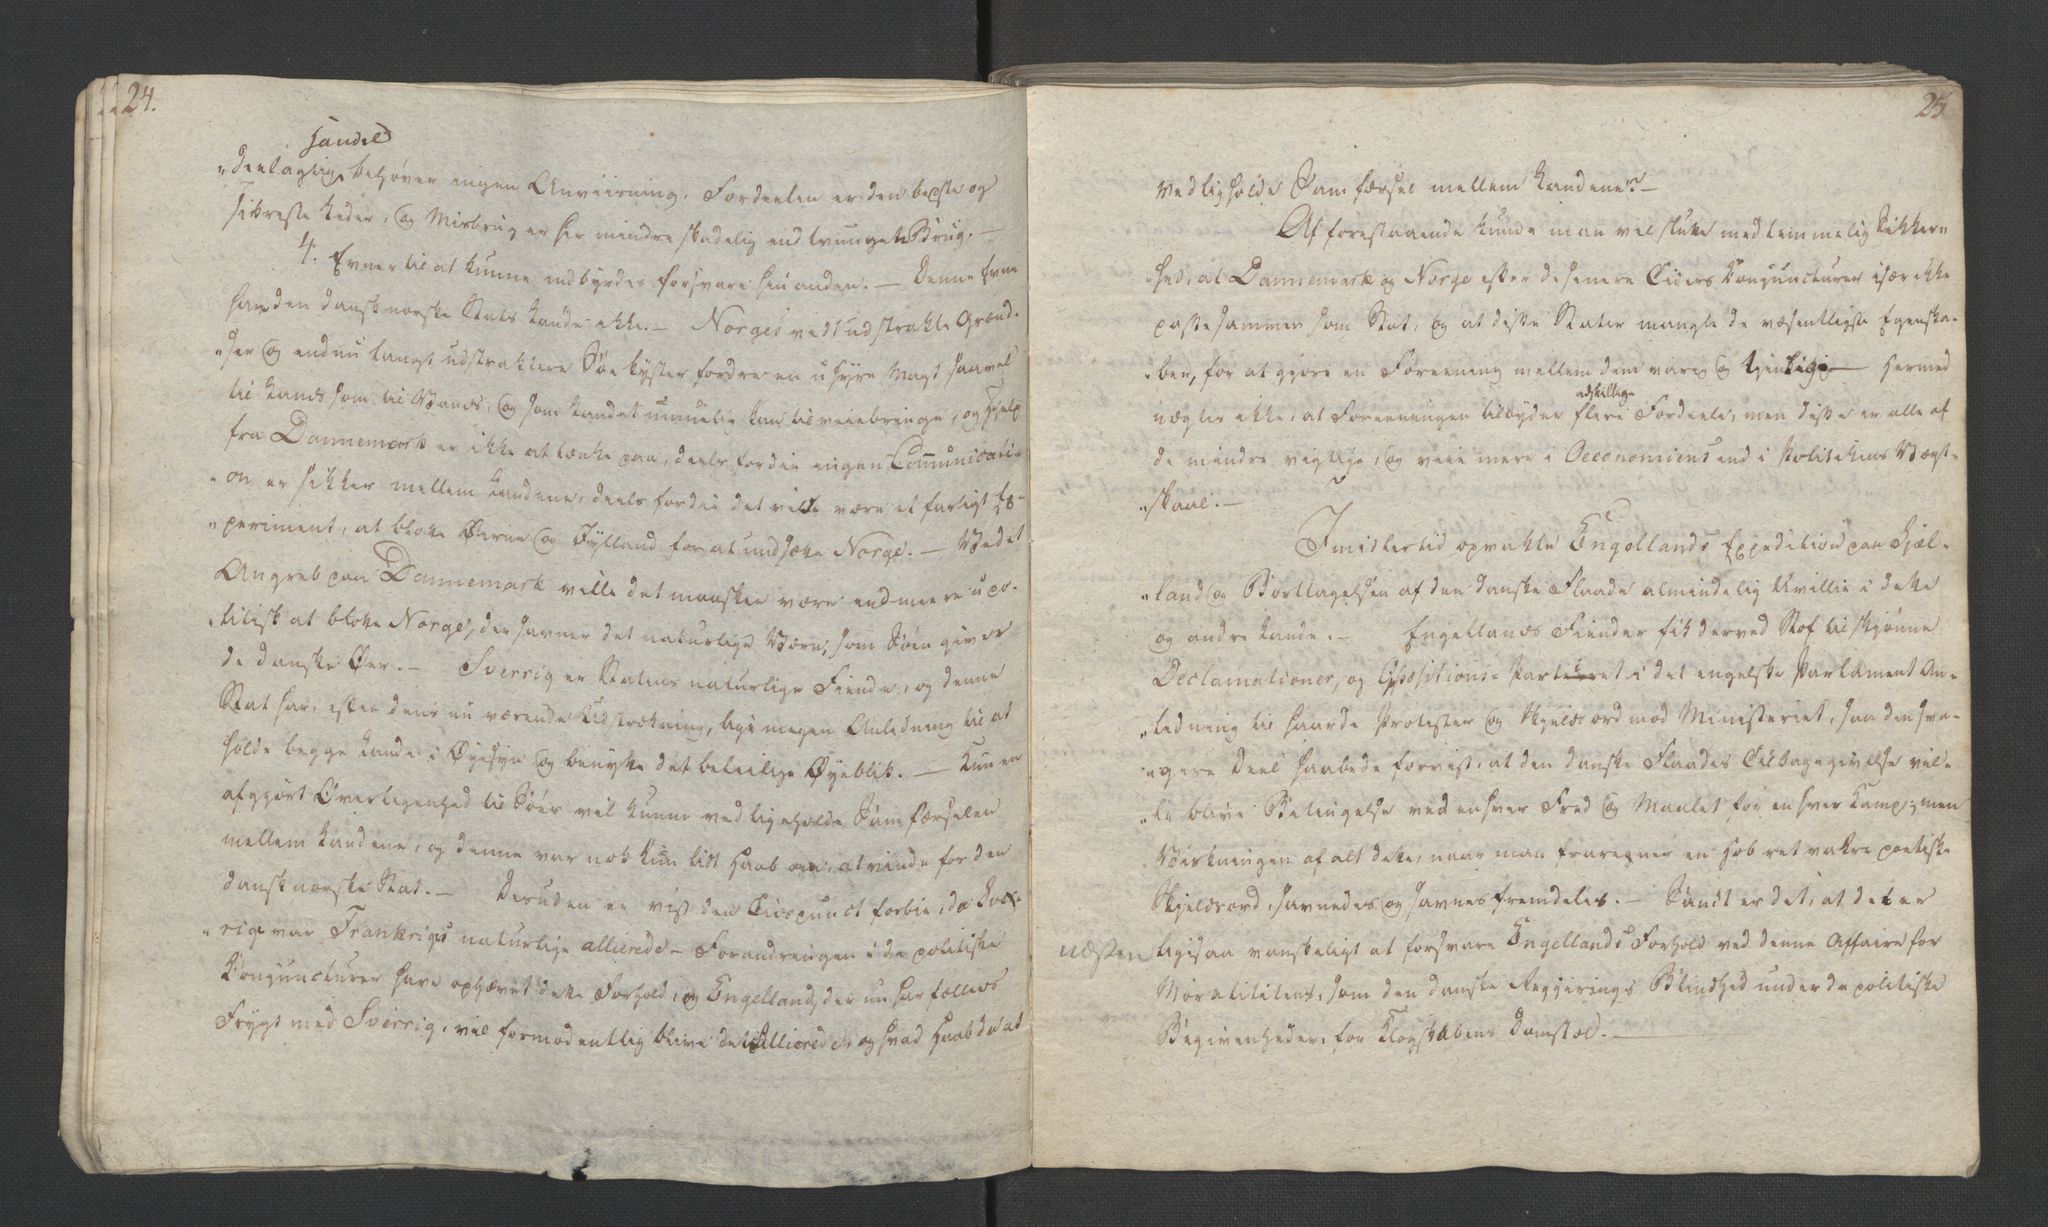 24.
Handel
"deelagtig behøver ingen Anviisning, Fordeelen er den beste og
sikreste Leder, og Misbrug er her mindre skadelig end tvungen Brug. —
4. Evner til at kunne indbyrdes forsvare hinanden. — Denne Evne
have den dansk norske Stats Lande ikke. — Norges vidtudstrakte Grænd-
"ser og endnu langt udstraktere Søe kyster fordre en uhyre Magt saavel
til Lands som til Vands, og som Landet umuelig kan tilveiebringe, og Hjelp
fra Dannemark er ikke at tænke paa, deels fordi ingen Communicati-
"on er sikker mellem Landene, deels fordi det ville være et farligt Ex-
"periment, at blotte Øerne og Jylland for at undsætte Norge. — Ved et
Angreb paa Dannemark ville det maaskee være end meere upo-
"litisk at blotte Norge, der savner det naturlige Værn, som Søen giver
de danske Øer. — Sverrig er Statens naturlige Fiende, og denne
Stat har, efter dens nu værende Udstrækning, lige megen Anledning til at
holde begge Lande i Øyesyn og benytte det beleilige Øyeblik. — Kun en
afgjort Overlegenhed til Søes vil kunne vedligeholde Samfærselen
mellem Landene, og denne var nok kun lidt Haab om, at vinde for den
dansk norske Stat. — Desuden er vist den Tidspunct forbie, da Sve-
"rig var Frankrigs naturlige allierede — Forandringen i de politiske
Conjuncturer have ophævet dette Forhold, og Engelland, der nu har fælleds
Frygt med Sverrig, vil formodentlig blive dets Allierede, og hvad Haab da at
25
vedligholde Samfærsel mellem Landene? —
Af forestaaende kunde man vel slutte med temmelig Sikker-
"hed, at Dannemark og Norge efter de senere Tiders Conjuncturer især ikke
passe sammen som Stat, og at disse Stater mangle de væsentligste Egenska-
"ber, for at gjøre en Foreening mellem dem varig og tjenlig — Hermed
nægtes ikke, at Foreeningen tilbyder flere adskillige Fordeele, men disse er alle af
de mindre vigtige, og veie mere i Oeconomiens end i Politikens Vægt-
"skaal. —
Imidlertid opvakte Engellands Expedition paa Sjæl-
"land og Borttagelsen af den danske Flaade almindelig Uvillie i dette
og andre Lande. — Engellands Fiender fik derved Stof til skjønne
Declamationer, og Oppositions-Partiet i det engelske Parlament An-
"ledning til haarde Protester og Skjelsord mod Ministeriet, saa den sva-
"gere Deel haabede forvist, at den danske Flaades Tilbagegivelse vil-
"le blive Betingelse ved enhver Fred og Maalet for enhver Kamp; men
Virkningen af alt dette, naar man fraregner en Hob ret vakre poetiske
Skjelsord, savnedes og savnes fremdeles. — Sandt er det, at det er
næsten ligesaa vanskeligt at forsvare Engellands Forhold ved denne Affaire for
Moraliteten, som den danske Regjerings Blindhed under de politiske
Begivenheder, for Klogskabens Domstol. —